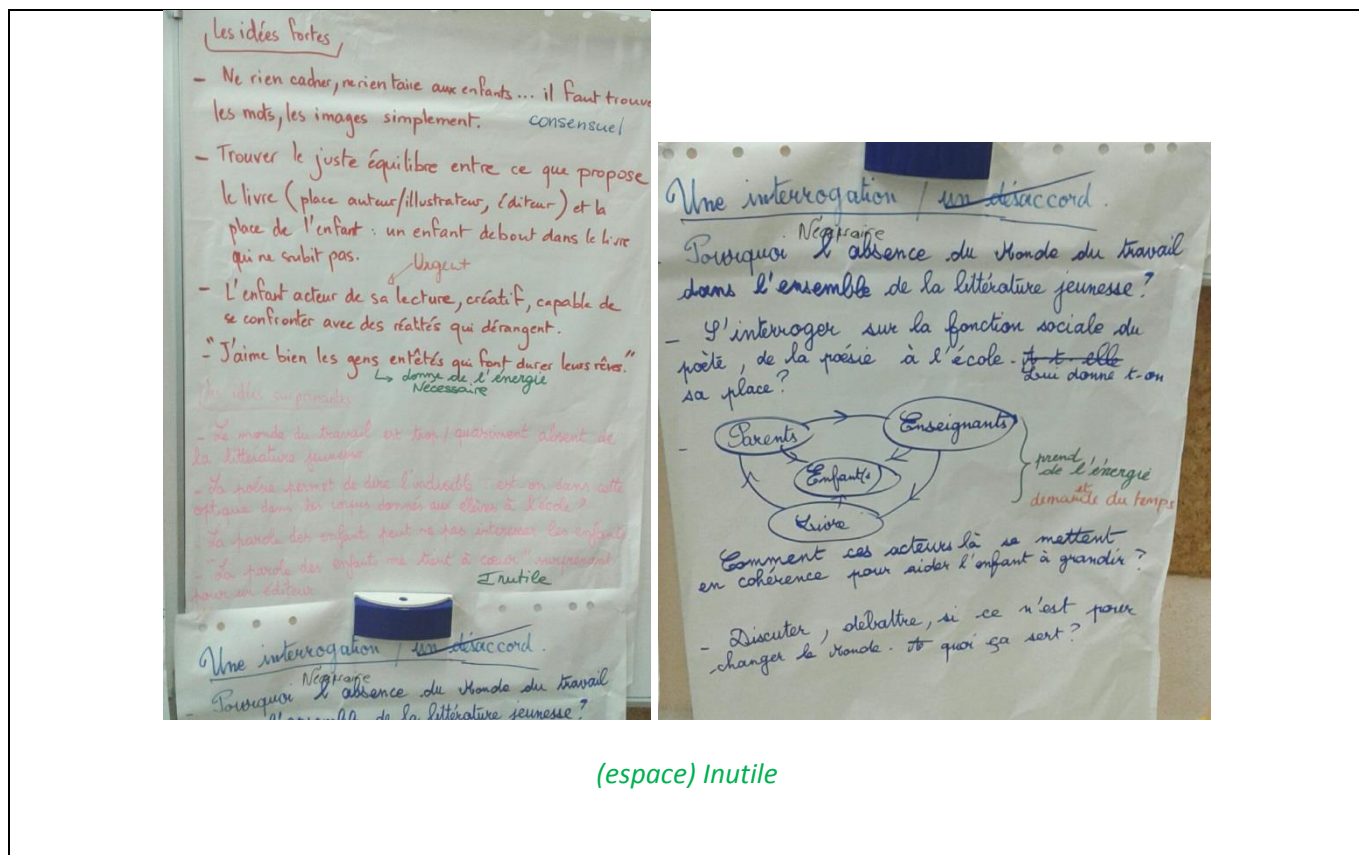 Les idées fortes
- Ne rien cacher, ne rien taire aux enfants... il faut trouve
les mots, les images simplement. consensuel
- Trouver le juste équilibre entre ce que propose
le livre (place auteur/illustrateur, éditeur) et la
place de l'enfant : un enfant debout dans le livre
qui ne subit pas.
Urgent
- L'enfant acteur de sa lecture, créatif, capable de
se confronter avec des réalités qui dérangent.
- "J'aime bien les gens entêtés qui font durer leurs rêves."
↳ donne de l'énergie
Nécessaire
Des idées surprenantes
- Le monde du travail est trop / quasiment absent de
la littérature jeunesse
- La poésie permet de dire l'indicible : est on dans cette
optique dans les corpus donnés aux élèves à l'école ?
- La parole des enfants peut ne pas intéresser les enfants
- "La parole des enfants me tient à cœur" surprenant
pour un éditeur
Inutile
Une interrogation / un désaccord.
Nécessaire
Pourquoi l'absence du Monde du travail
l'ensemble de la littérature jeunesse ?
Une interrogation / un désaccord.
Nécessaire
Pourquoi l'absence du Monde du travail
dans l'ensemble de la littérature jeunesse ?
- S'interroger sur la fonction sociale du
poète, de la poésie à l'école. A t-elle
Lui donne t-on
sa place ?
Parents
Enseignants
Enfant(s)
Livre
prend
de l'énergie
et
demande du temps
Comment ces acteurs là se mettent
en cohérence pour aider l'enfant à grandir ?
- Discuter, débattre, si ce n'est pour
changer le Monde. A quoi ça sert ?
(espace) Inutile